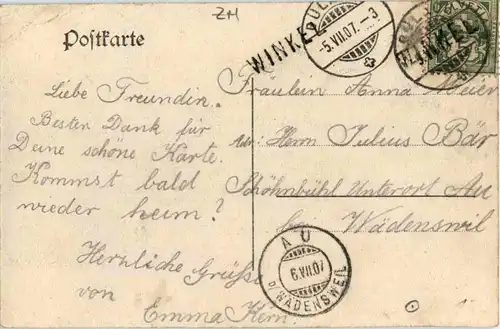 ZH
Postkarte
WINKEL
5.VII.07.-3
WINKEL
Liebe Freundin.
Besten Dank für
Deine schöne Karte.
Kommst bald
wieder heim?
Herzliche Grüsse
von
Emma Kern.
Fräulein Anna Meier
Adr: Herrn Julius Bär
Schönbühl Unterort Au
bei Wädensweil
AU
6.VII.07
b/WÄDENSWEIL